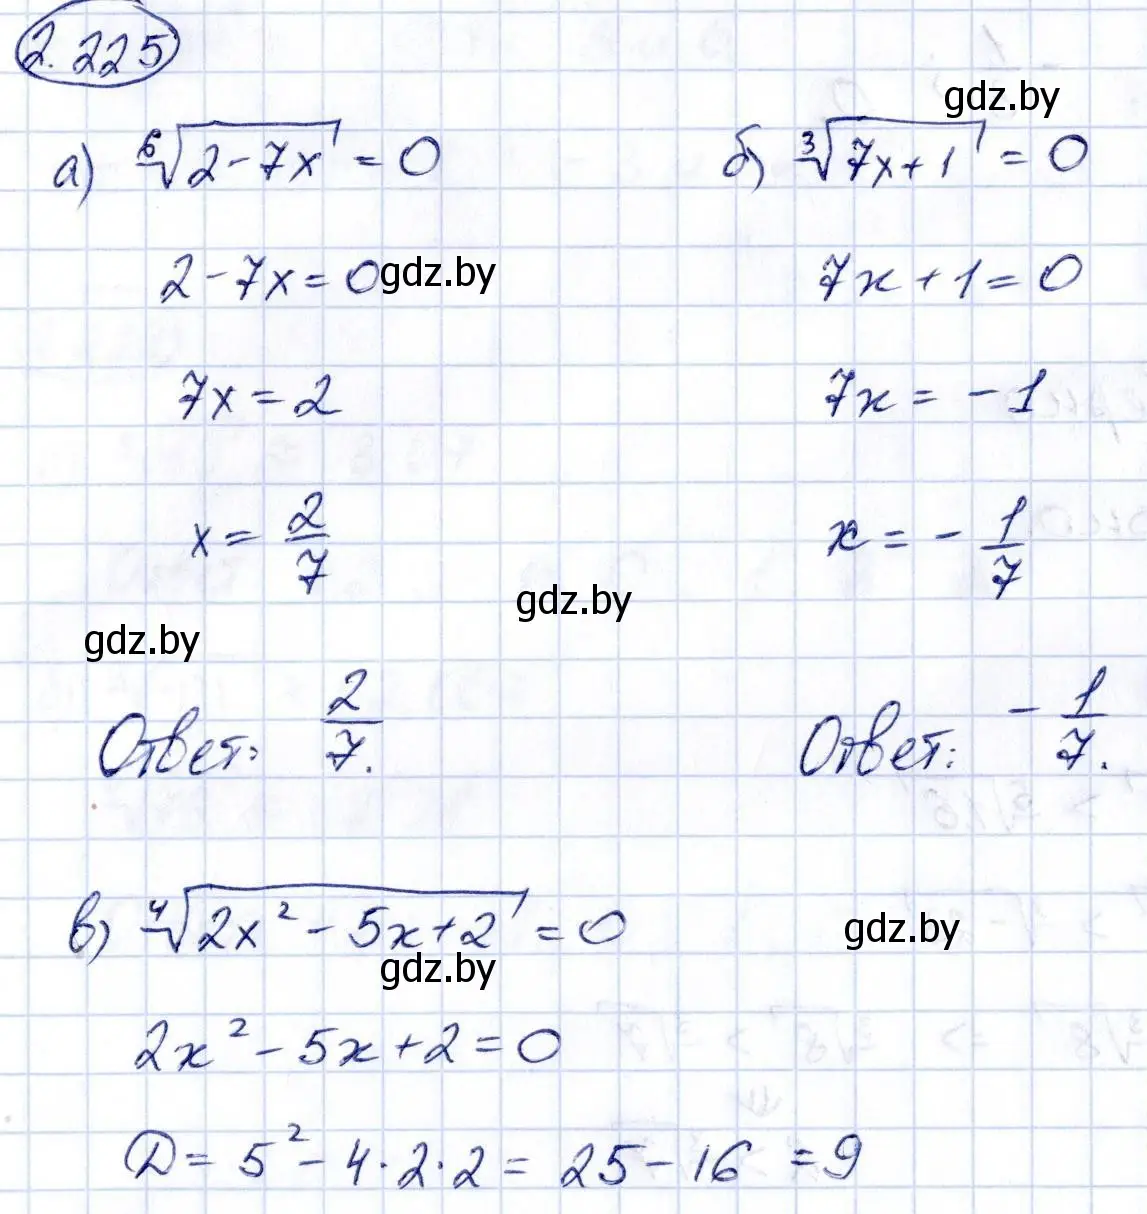 2.225
а) ⁶√(2-7x) = 0
2-7x=0
7x=2
x= 2/7
Ответ: 2/7.
б) ³√(7x+1) = 0
7x+1=0
7x = -1
x = -1/7
Ответ: -1/7.
в) ⁴√(2x²-5x+2) = 0
2x²-5x+2=0
D= 5²-4·2·2= 25-16 =9
gdz.by
gdz.by
gdz.by
gdz.by
gdz.by
gdz.by